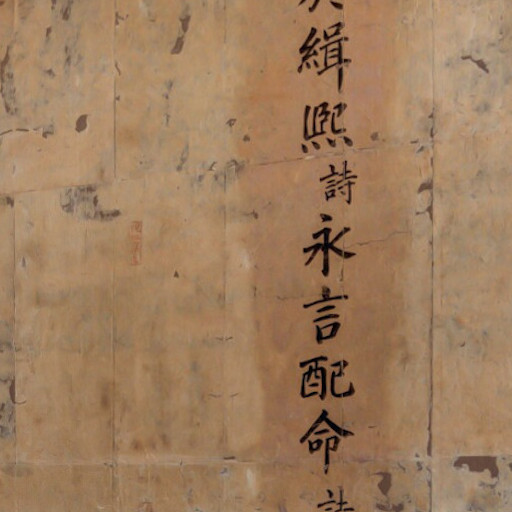 緝熙詩永言配命詩